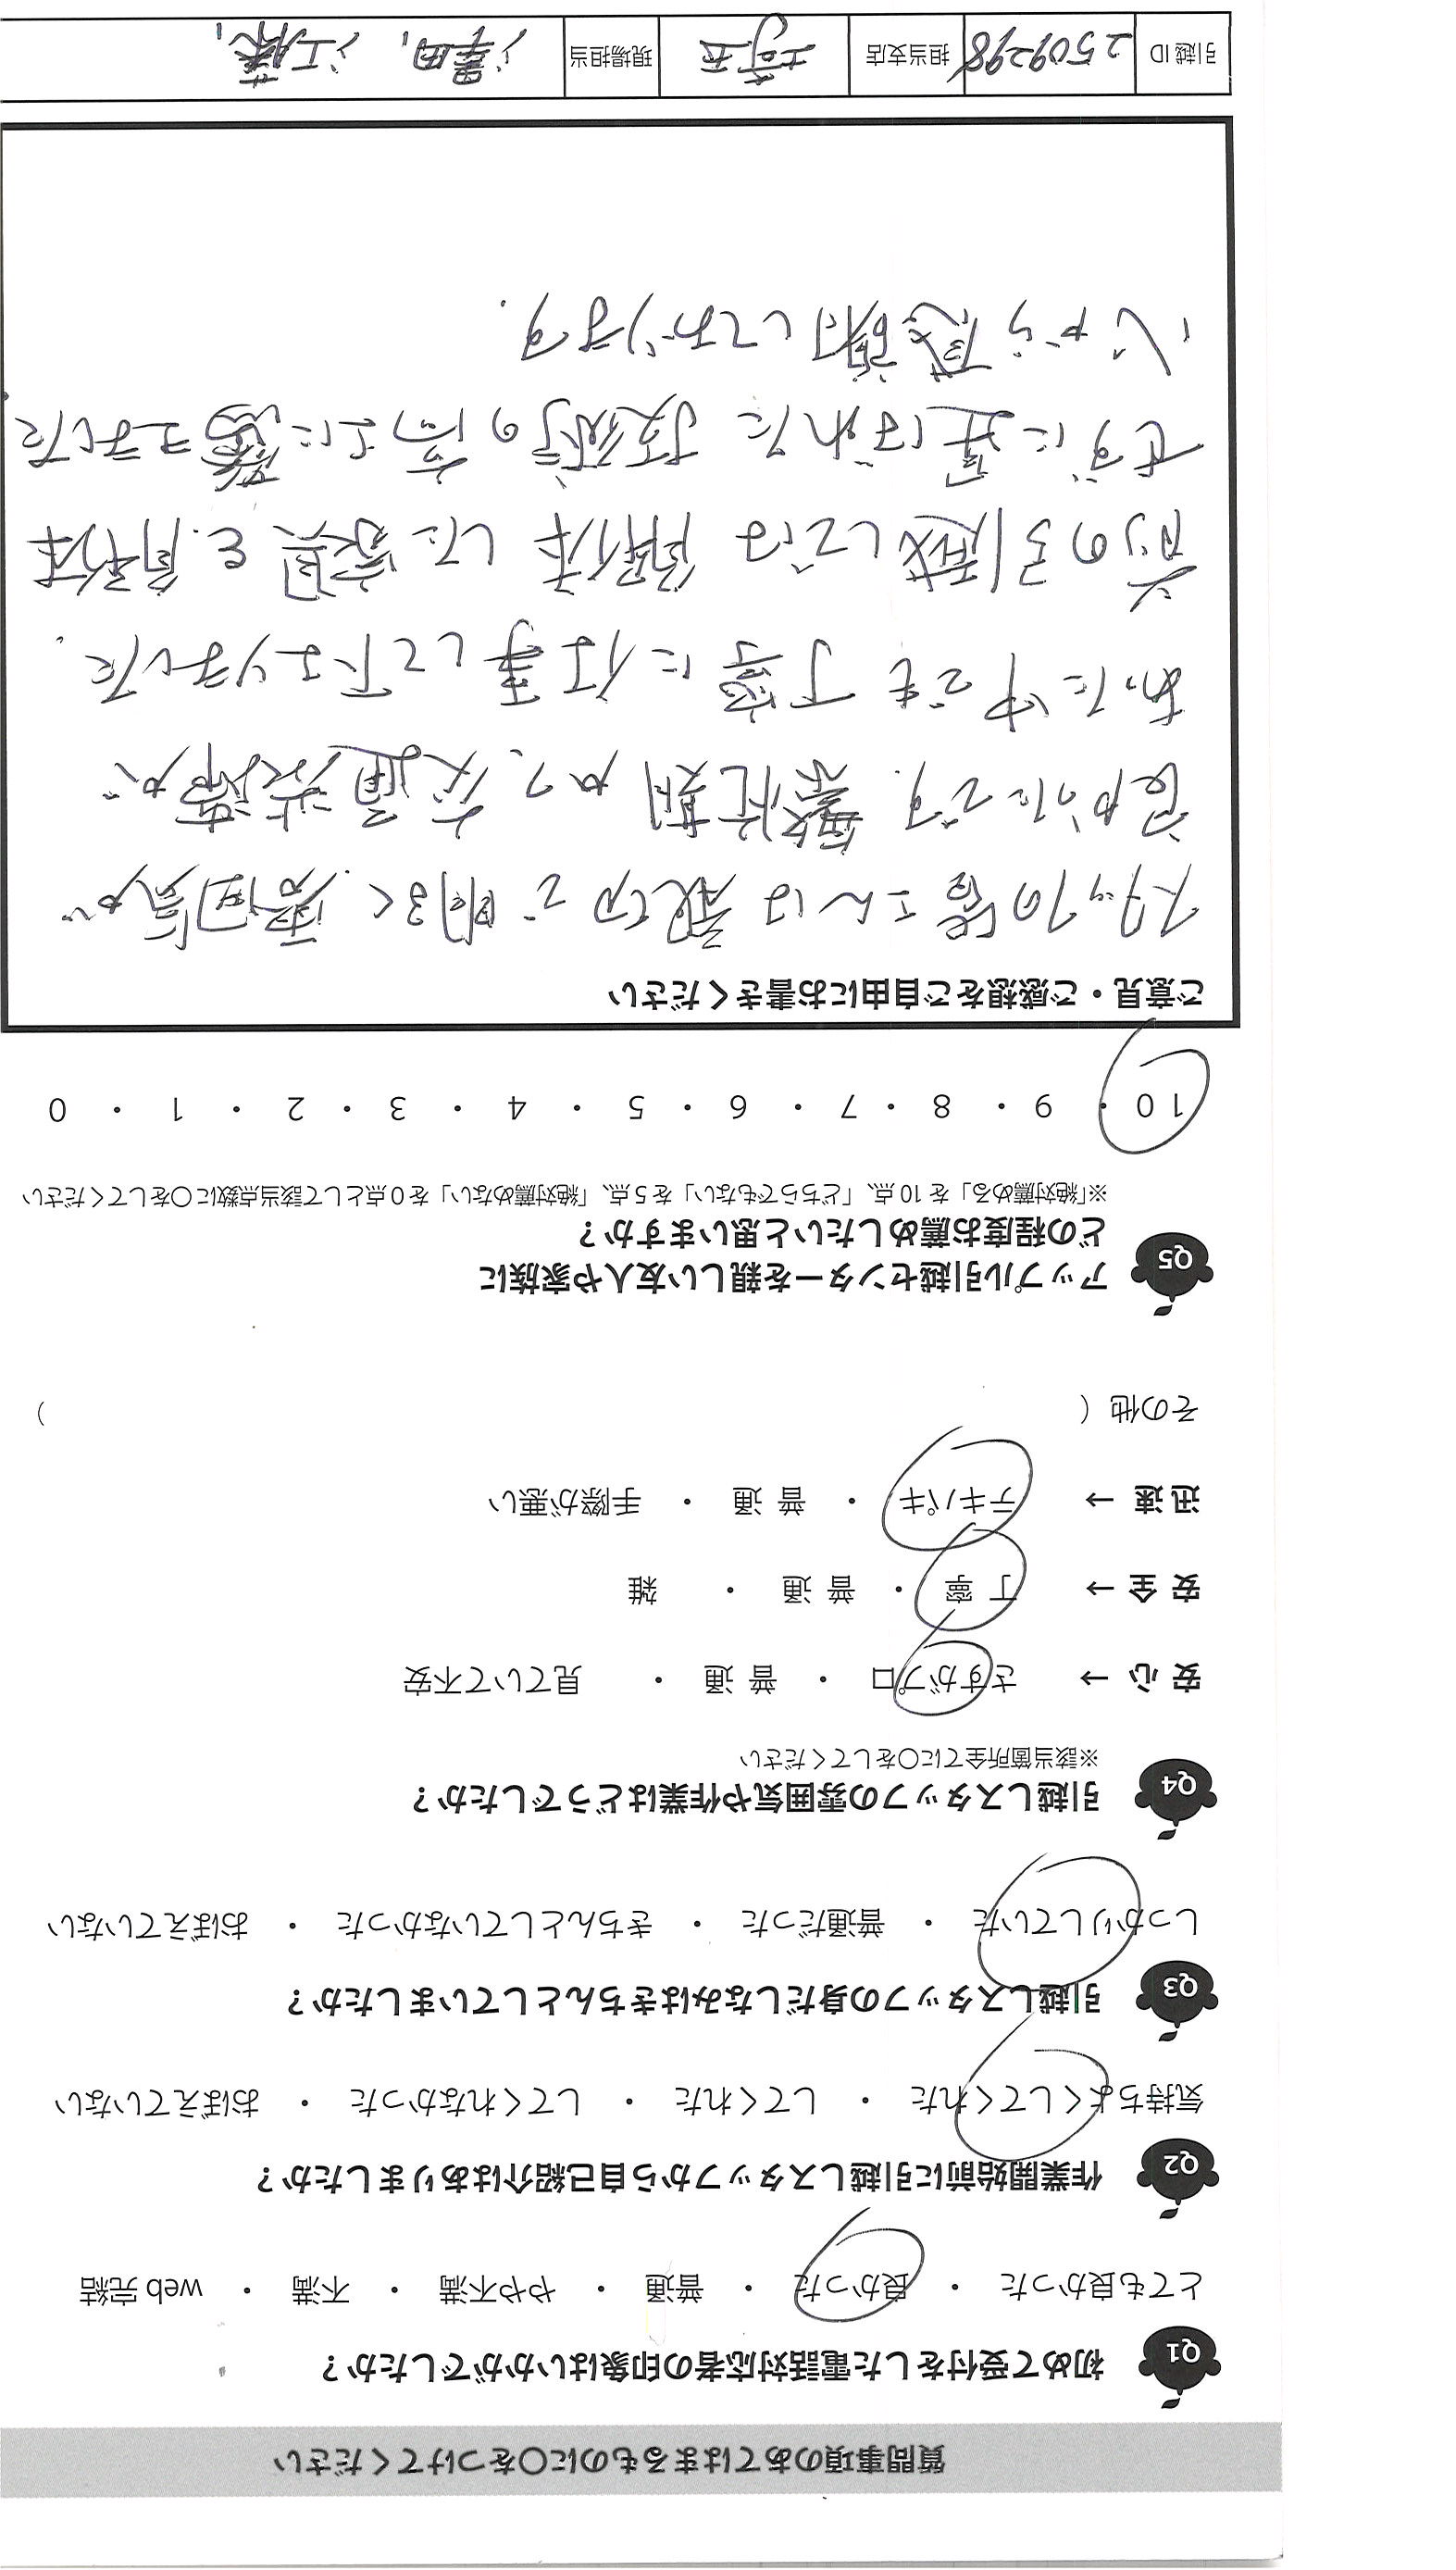 質問事項のあてはまるものに○をつけてください
Q1 初めて受付をした電話対応者の印象はいかがでしたか？
とても良かった ・ 良かった ・ 普通 ・ やや不満 ・ 不満 ・ web 完結
Q2 作業開始前に引越しスタッフから自己紹介はありましたか？
気持ちよくしてくれた ・ してくれた ・ してくれなかった ・ おぼえていない
Q3 引越しスタッフの身だしなみはきちんとしていましたか？
しっかりしていた ・ 普通だった ・ きちんとしていなかった ・ おぼえていない
Q4 引越しスタッフの雰囲気や作業はどうでしたか？
※該当箇所全てに○をしてください
安 心 → さすがプロ ・ 普 通 ・ 見ていて不安
安 全 → 丁 寧 ・ 普 通 ・ 雑
迅 速 → テキパキ ・ 普 通 ・ 手際が悪い
その他（ ）
Q5 アップル引越センターを親しい友人や家族に
どの程度お薦めしたいと思いますか？
※「絶対薦める」を 10 点、「どちらでもない」を 5 点、「絶対薦めない」を 0 点として該当点数に○をしてください
10 ・ 9 ・ 8 ・ 7 ・ 6 ・ 5 ・ 4 ・ 3 ・ 2 ・ 1 ・ 0
ご意見・ご感想をご自由にお書きください
スタッフの皆さんは親切で明るく、雰囲気が
良かったです。繁忙期かつ、交通渋滞が
あった中でも丁寧に仕事して下さりました。
前の引越しでは解体した家具を、解体
せずに運ばれた技術の高さに驚きました。
心から感謝しております。
引越 ID 2509298 担当支店 埼玉 現場担当 澤田、江藤、